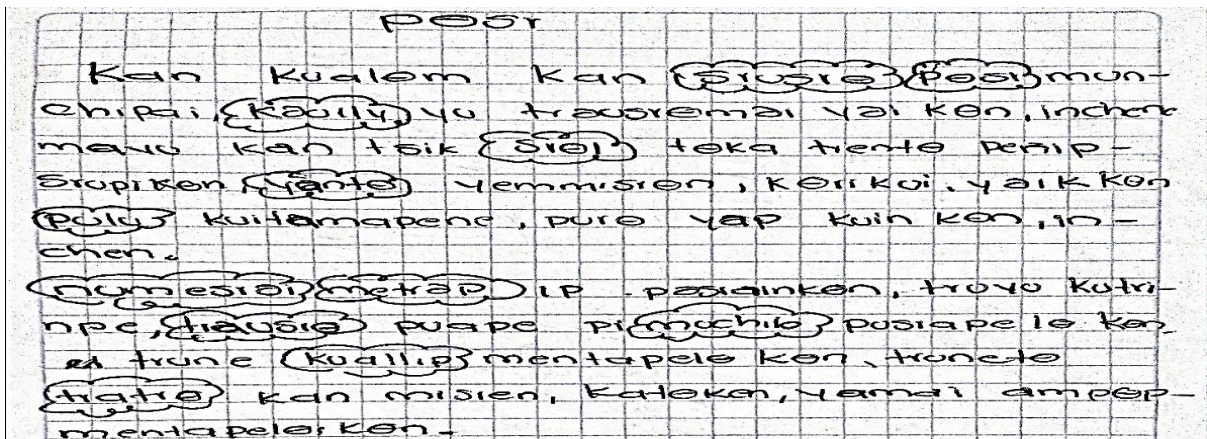 pesr
Kan Kualom Kan srusrə pesr mun-
chipai, Kaully yu trausremai yai Kən, inchene
mayu Kan tsik srəi təka trentə penip-
srupikən yəntə yemmisrən, Kərikui, yaik Kən
pulu Kuitəmapene, purə yap Kuin Kən, in-
chen.
numesrəi metrap ip pasrainkən, truyu Kutri-
npe, trausrə puape pi machib pusrape lə Kən
trune Kuallip mentapelə Kən, trunetə
tratrə Kan misren, Katəkən, yamai ampəp-
mentapeləi Kən-